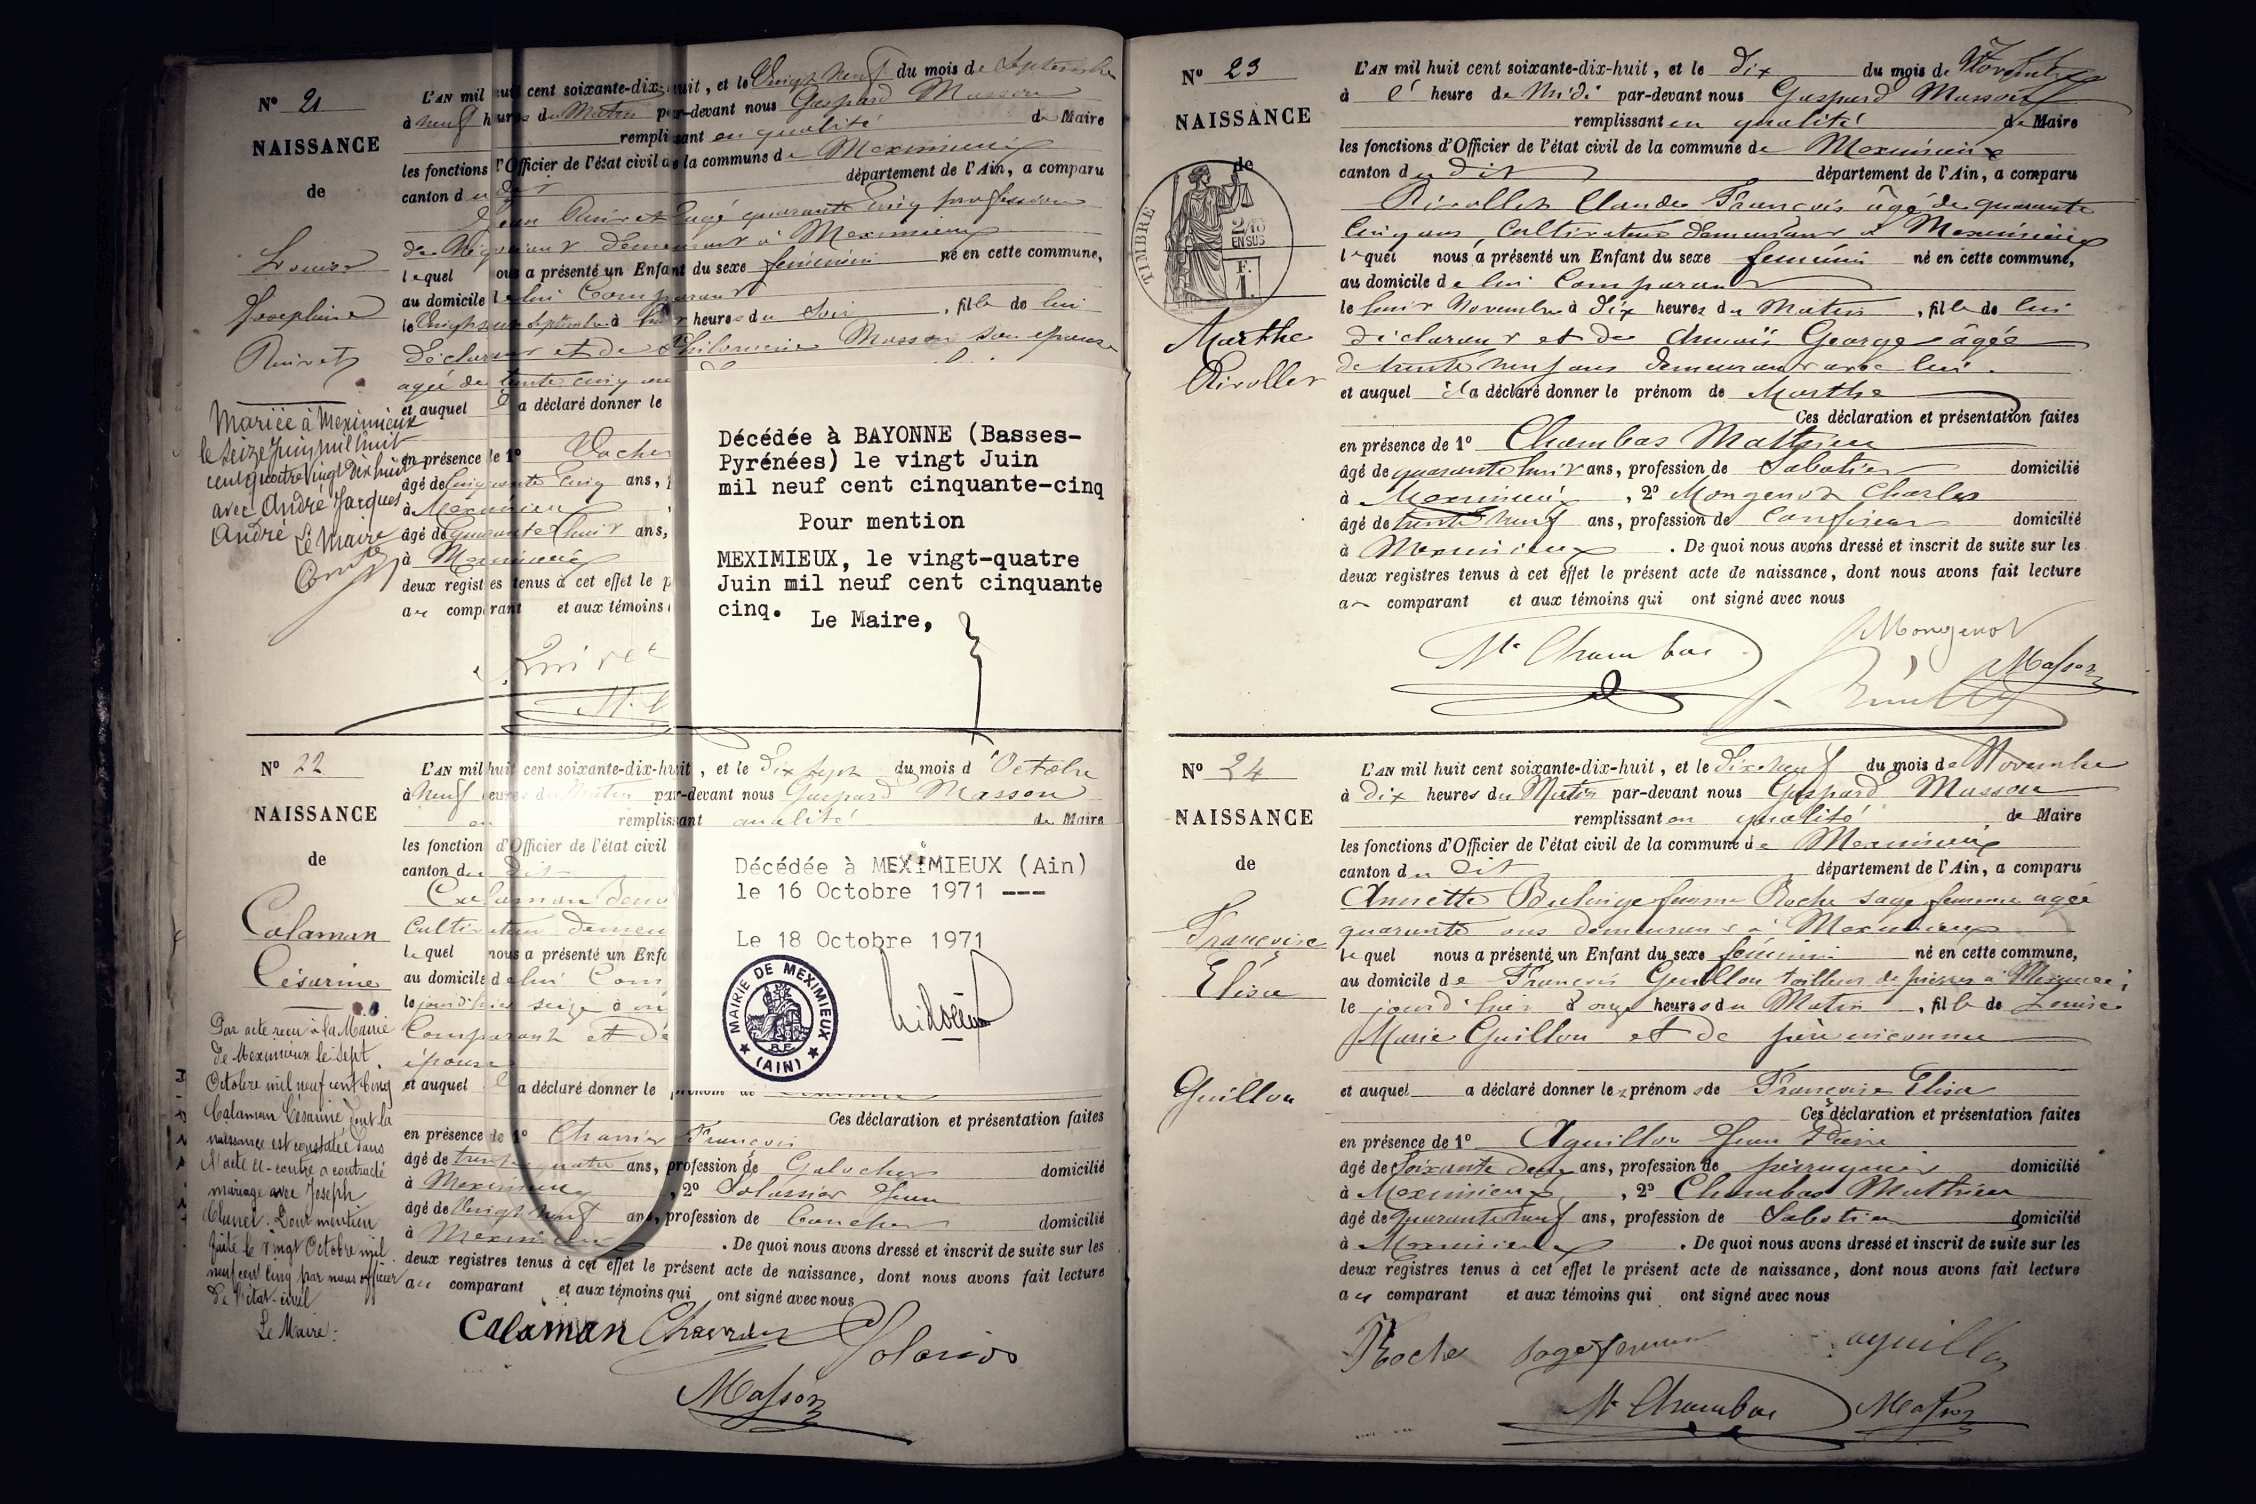 N° 21
NAISSANCE
de
Louise
Josephine
Ruivet
Mariée à Meximieux
le seize Juin mil huit
cent quatre vingt dix huit
avec André Jacques
André Le Maire
L'AN mil huit cent soixante-dix-huit, et le Vingt neuf du mois de Septembre
à neuf heures du Matin par-devant nous Gaspard Masson
remplissant en qualité de Maire
les fonctions d'Officier de l'état civil de la commune de Meximieux
canton du dit département de l'Ain, a comparu
Ruivet âgé quarante cinq profession
de Négociant demeurant à Meximieux
lequel nous a présenté un Enfant du sexe féminin né en cette commune,
au domicile de lui Comparant
le Septembre à heures du Soir, fille de lui
déclarant et de Philomène Masson son épouse
agée de trente cinq an
et auquel il a déclaré donner le
en présence de 1° Vacher
âgé de cinquante cinq ans,
à Meximieux
âgé de quarante huit ans,
à Meximieux
deux registres tenus à cet effet le p
au comparant et aux témoins
Ruivet
Décédée à BAYONNE (Basses-
Pyrénées) le vingt Juin
mil neuf cent cinquante-cinq
Pour mention
MEXIMIEUX, le vingt-quatre
Juin mil neuf cent cinquante
cinq.
Le Maire,
N° 22
NAISSANCE
de
Calaman
Césarine
Par acte reçu à la Mairie
de Meximieux le sept
Octobre mil neuf cent cinq
Calaman Césarine, dont la
naissance est constatée dans
l'acte ci-contre a contracté
mariage avec Joseph
Clunet. Pour mention
faite le vingt Octobre mil
neuf cent cinq par nous officier
de l'état-civil
Le Maire:
L'AN mil huit cent soixante-dix-huit, et le dix sept du mois d'Octobre
à Neuf heures du Matin par-devant nous Gaspard Masson
en remplissant qualité de Maire
les fonction d'Officier de l'état civil
canton du dit
Calaman
Cultivateur demeu
lequel nous a présenté un Enfa
au domicile de lui Com
le jour d'hier seize à
Comparant et de
épouse
et auquel il a déclaré donner le prénom de
Ces déclaration et présentation faites
en présence de 1° Charrier François
âgé de trente quatre ans, profession de Galocher domicilié
à Meximieux, 2° Jean
âgé de Vingt neuf ans, profession de domicilié
à Meximieux. De quoi nous avons dressé et inscrit de suite sur les
deux registres tenus à cet effet le présent acte de naissance, dont nous avons fait lecture
au comparant et aux témoins qui ont signé avec nous
Calaman
Masson
Décédée à MEXIMIEUX (Ain)
le 16 Octobre 1971 ---
Le 18 Octobre 1971
MAIRIE DE MEXIMIEUX
R.F.
(AIN)
N° 23
NAISSANCE
de
TIMBRE
2/10
EN SUS
F.
1.
Marthe
Rivollet
L'AN mil huit cent soixante-dix-huit, et le Dix du mois de Novembre
à l' heure de Midi par-devant nous Gaspard Masson
remplissant en qualité de Maire
les fonctions d'Officier de l'état civil de la commune de Meximieux
canton du dit département de l'Ain, a comparu
Rivollet Claude François âgé de quarante
Cinq ans, Cultivateur demeurant à Meximieux
lequel nous a présenté un Enfant du sexe féminin né en cette commune,
au domicile de lui Comparant
le huit Novembre à Dix heures du Matin, fille de lui
déclarant et de George âgée
de trente neuf ans demeurant avec lui.
et auquel il a déclaré donner le prénom de Marthe
Ces déclaration et présentation faites
en présence de 1° Chambas Mathieu
âgé de quarante huit ans, profession de Sabotier domicilié
à Meximieux, 2° Mongenot Charles
âgé de trente neuf ans, profession de Confiseur domicilié
à Meximieux. De quoi nous avons dressé et inscrit de suite sur les
deux registres tenus à cet effet le présent acte de naissance, dont nous avons fait lecture
au comparant et aux témoins qui ont signé avec nous
Mt Chambas
Mongenot
Masson
N° 24
NAISSANCE
de
Françoise
Elisa
Guillon
L'AN mil huit cent soixante-dix-huit, et le Dix-Neuf du mois de Novembre
à Dix heures du Matin par-devant nous Gaspard Masson
remplissant en qualité de Maire
les fonctions d'Officier de l'état civil de la commune de Meximieux
canton du dit département de l'Ain, a comparu
Annette femme Roche sage femme agée
quarante ans demeurant à Meximieux
lequel nous a présenté un Enfant du sexe féminin né en cette commune,
au domicile de François Guillon tailleur de pierres à
le jourd'hui à onze heures du Matin, fille de Louise
Marie Guillon et de père inconnu
et auquel a déclaré donner les prénoms de Françoise Elisa
Ces déclaration et présentation faites
en présence de 1° Aguillon Jean Pierre
âgé de Soixante deux ans, profession de perruquier domicilié
à Meximieux, 2° Chambas Mathieu
âgé de quarante neuf ans, profession de Sabotier domicilié
à Meximieux. De quoi nous avons dressé et inscrit de suite sur les
deux registres tenus à cet effet le présent acte de naissance, dont nous avons fait lecture
au comparant et aux témoins qui ont signé avec nous
Roche sage femme
aguillon
Mt Chambas
Masson